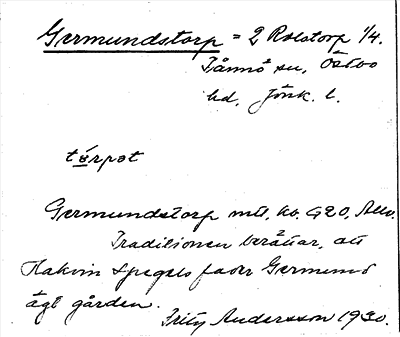 Germundstorp = 2 Rolstorp 1/4.
Tånnö sn, Östbo
hd, Jönk. l.
törpət
Germundstorp mtl, ko. G20, Allm.
Traditionen berättar, att
Hakvin Spegels fader Germund
ägt gården.
Fritz Andersson 1930.